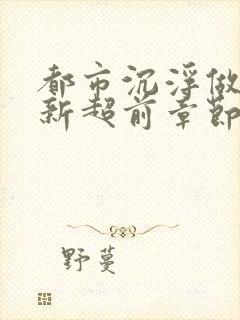 都市沉浮做
新超前章節
野蔓